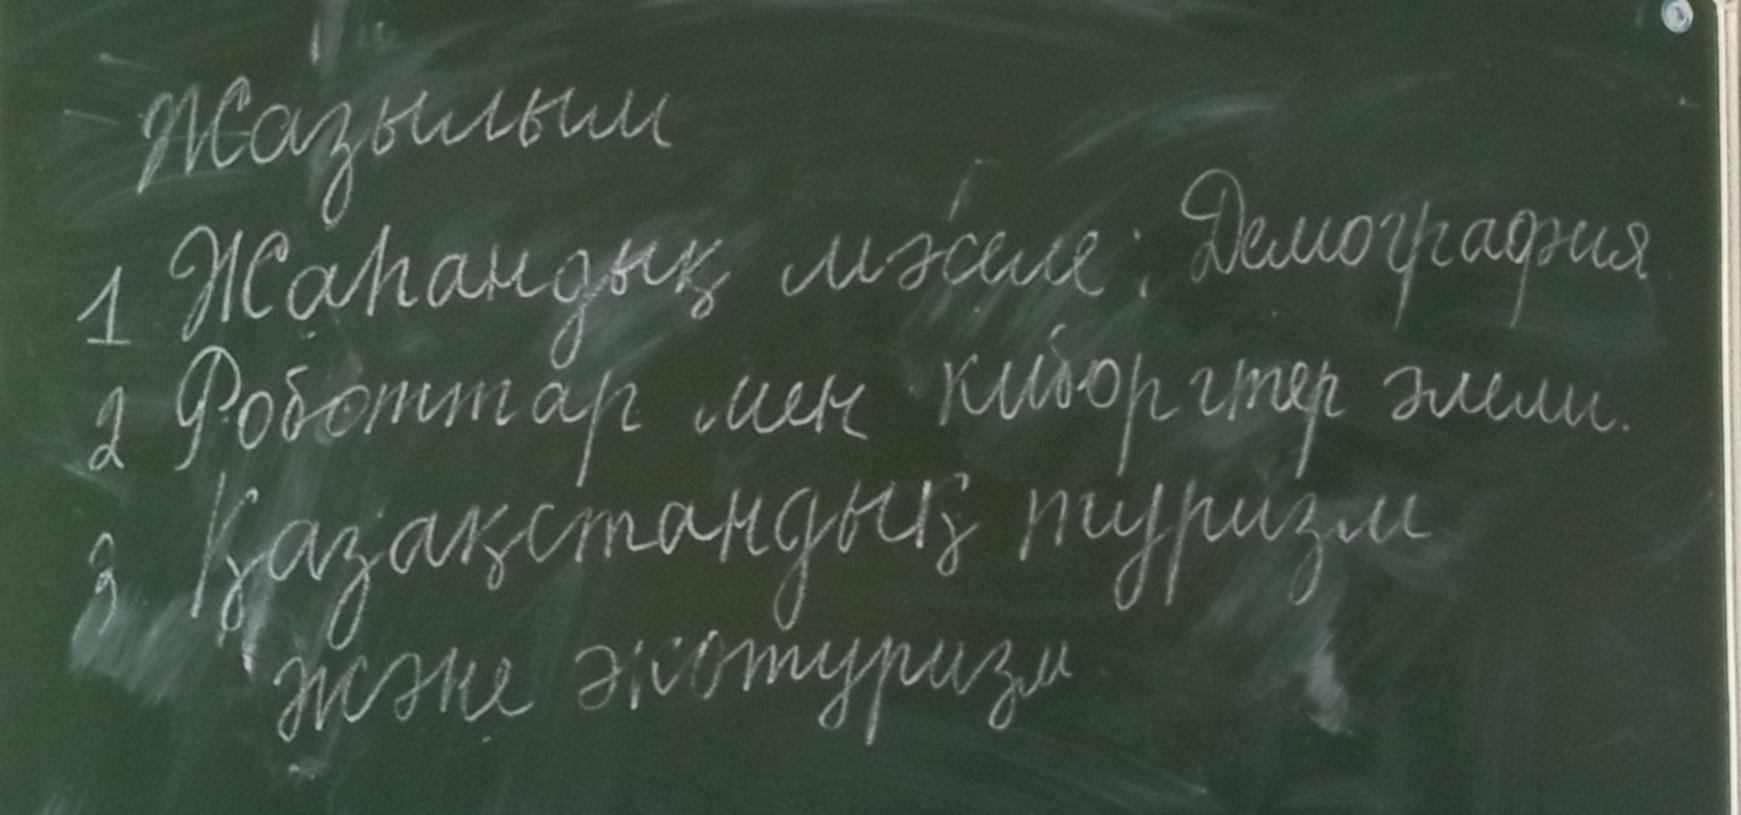 Жазылым
1 Жаһандық мәселе: Демография
2 Роботтар мен киборгтер әлемі.
3 Қазақстандық туризм
және экотуризм